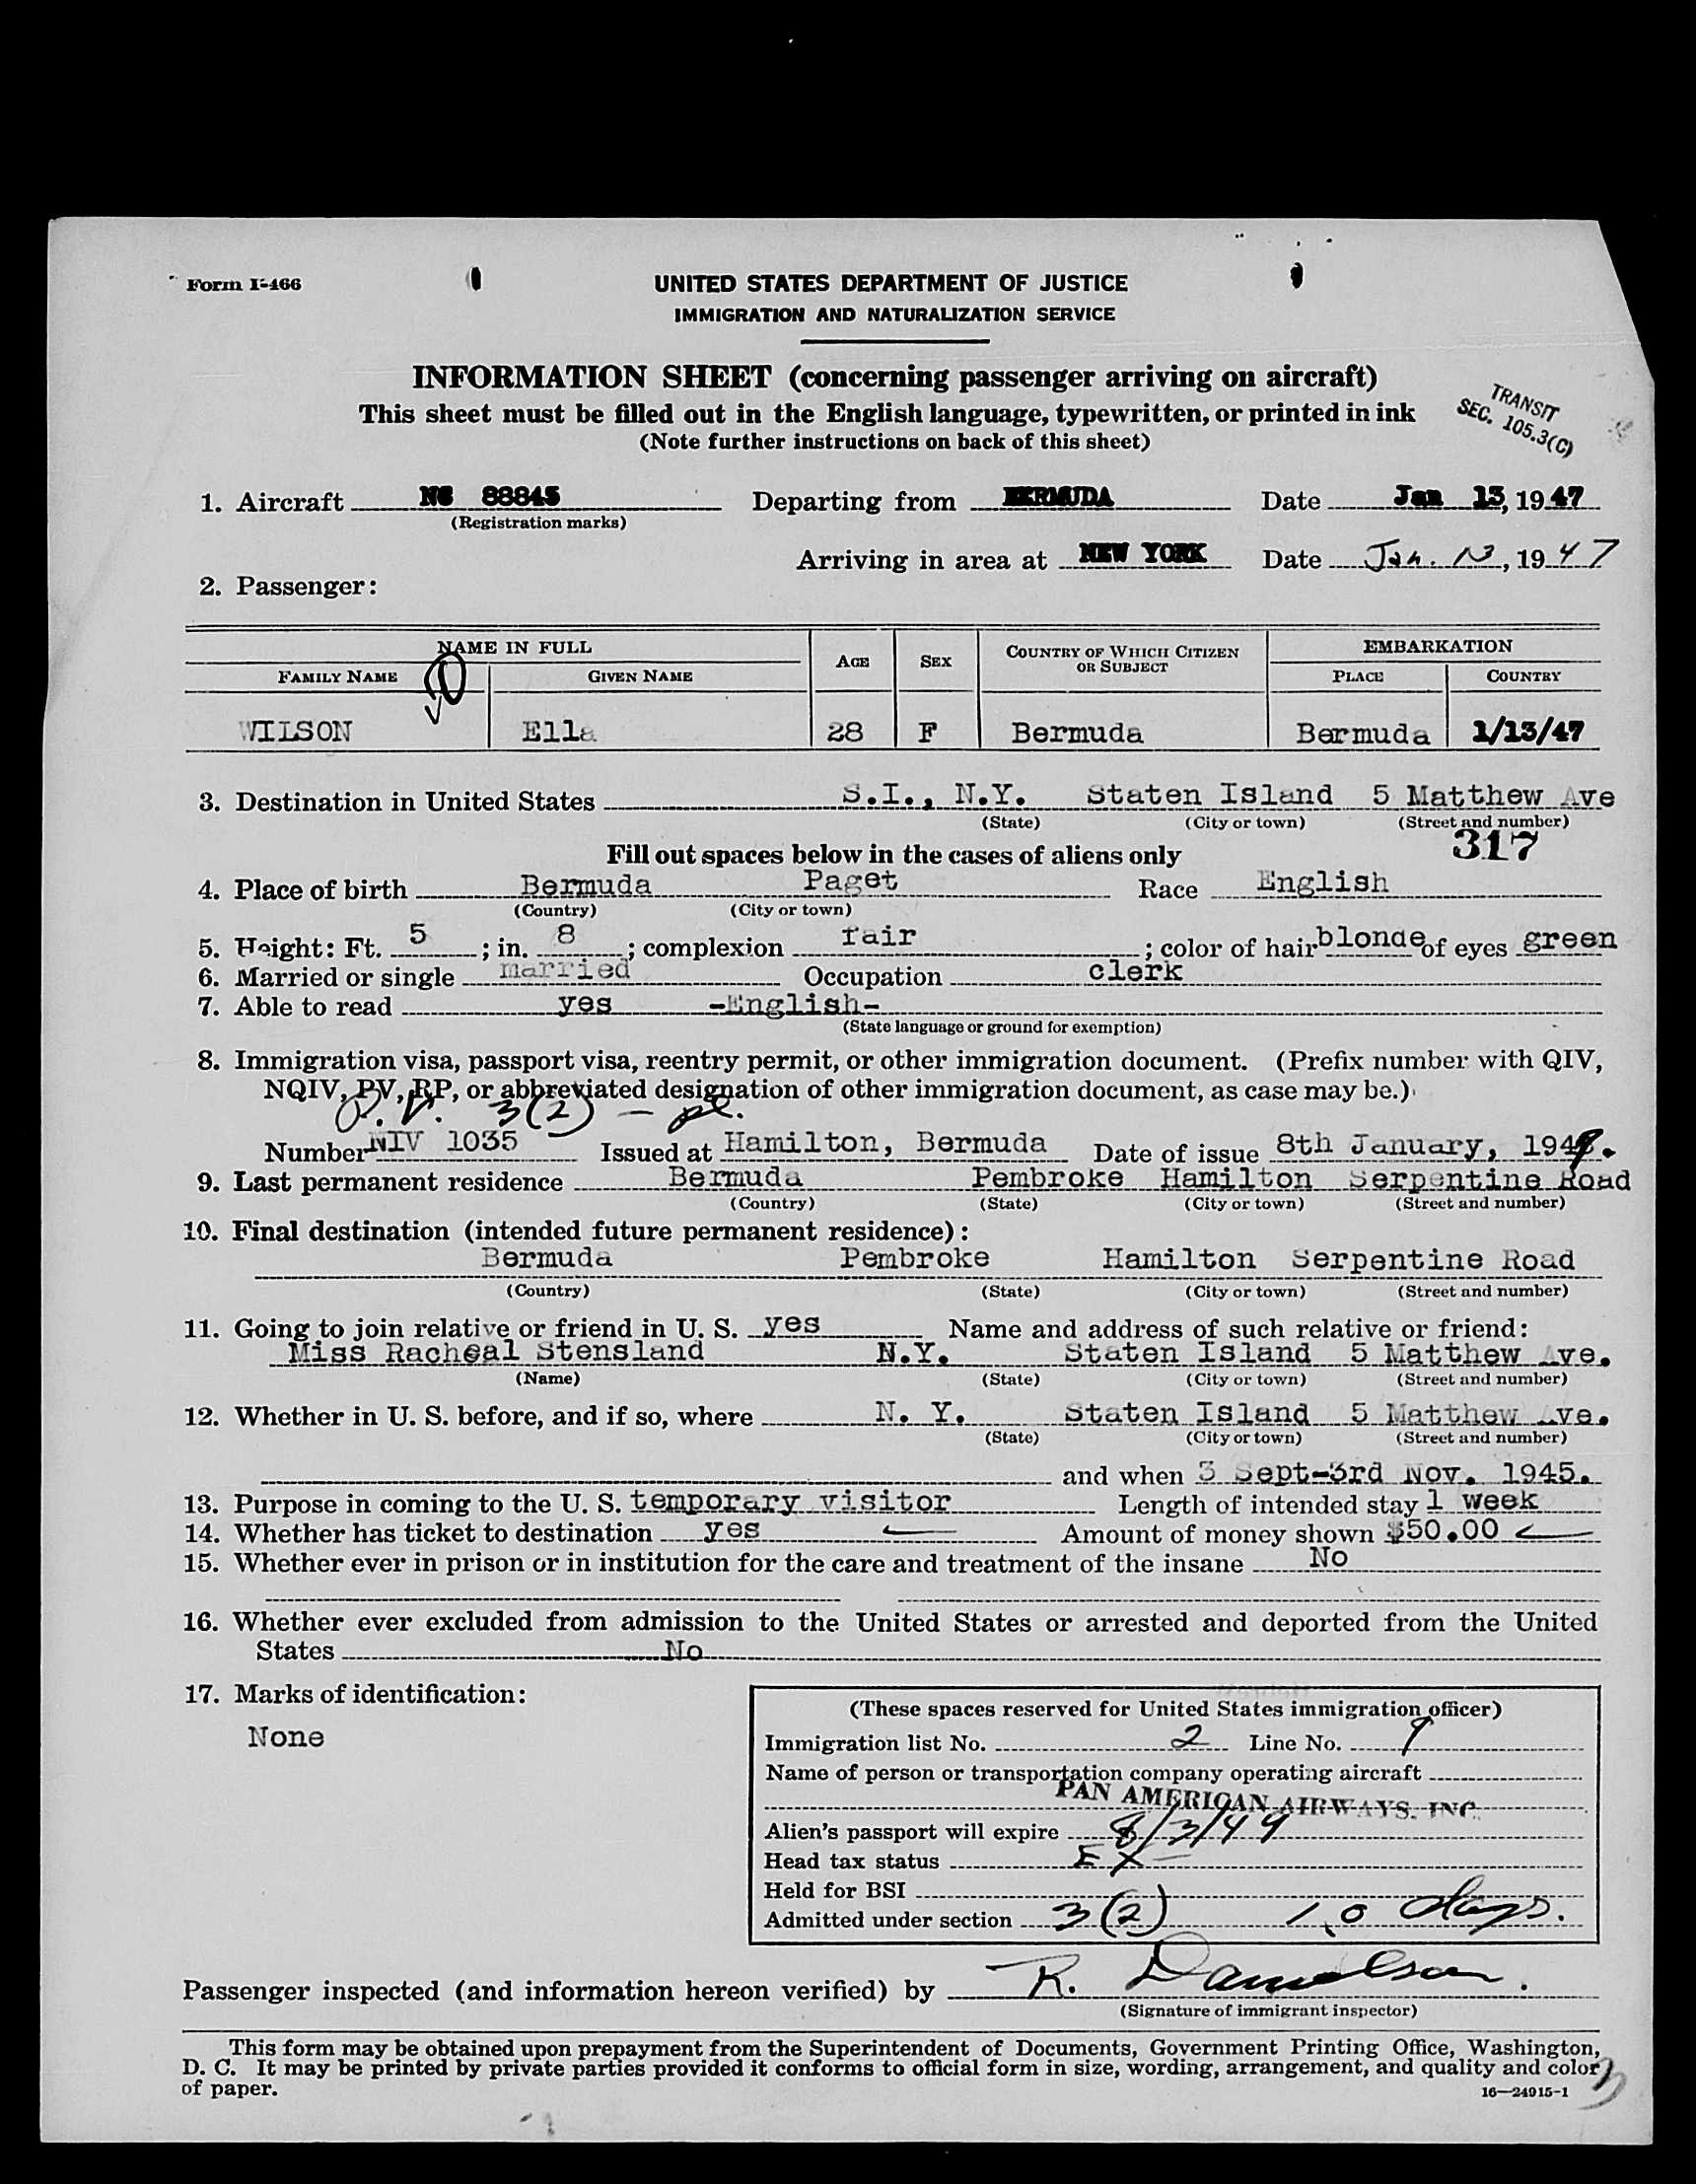 Form I-466
UNITED STATES DEPARTMENT OF JUSTICE
IMMIGRATION AND NATURALIZATION SERVICE
INFORMATION SHEET (concerning passenger arriving on aircraft)
This sheet must be filled out in the English language, typewritten, or printed in ink
(Note further instructions on back of this sheet)
TRANSIT
SEC. 105.3(C)
1. Aircraft NC 88845 Departing from BERMUDA Date Jan 13, 1947
(Registration marks)
Arriving in area at NEW YORK Date Jan. 13, 1947
2. Passenger:
NAME IN FULL AGE SEX COUNTRY OF WHICH CITIZEN OR SUBJECT EMBARKATION
FAMILY NAME GIVEN NAME PLACE COUNTRY
WILSON Ella 28 F Bermuda Bermuda 1/13/47
3. Destination in United States S.I., N.Y. Staten Island 5 Matthew Ave
(State) (City or town) (Street and number)
317
Fill out spaces below in the cases of aliens only
4. Place of birth Bermuda Paget Race English
(Country) (City or town)
5. Height: Ft. 5 ; in. 8 ; complexion fair ; color of hair blonde of eyes green
6. Married or single married Occupation clerk
7. Able to read yes -English-
(State language or ground for exemption)
8. Immigration visa, passport visa, reentry permit, or other immigration document. (Prefix number with QIV,
NQIV, PV, RP, or abbreviated designation of other immigration document, as case may be.)
P.V. 3(2) —
Number NIV 1035 Issued at Hamilton, Bermuda Date of issue 8th January, 1947.
9. Last permanent residence Bermuda Pembroke Hamilton Serpentine Road
(Country) (State) (City or town) (Street and number)
10. Final destination (intended future permanent residence):
Bermuda Pembroke Hamilton Serpentine Road
(Country) (State) (City or town) (Street and number)
11. Going to join relative or friend in U. S. yes Name and address of such relative or friend:
Miss Racheal Stensland N.Y. Staten Island 5 Matthew Ave.
(Name) (State) (City or town) (Street and number)
12. Whether in U. S. before, and if so, where N. Y. Staten Island 5 Matthew Ave.
(State) (City or town) (Street and number)
and when 3 Sept-3rd Nov. 1945.
13. Purpose in coming to the U. S. temporary visitor Length of intended stay 1 week
14. Whether has ticket to destination yes Amount of money shown $50.00
15. Whether ever in prison or in institution for the care and treatment of the insane No
16. Whether ever excluded from admission to the United States or arrested and deported from the United
States No
17. Marks of identification:
None
(These spaces reserved for United States immigration officer)
Immigration list No. 2 Line No. 9
Name of person or transportation company operating aircraft
PAN AMERICAN AIRWAYS, INC.
Alien's passport will expire 8/3/49
Head tax status EX
Held for BSI
Admitted under section 3(2) 10 days.
Passenger inspected (and information hereon verified) by R. Danielson.
(Signature of immigrant inspector)
This form may be obtained upon prepayment from the Superintendent of Documents, Government Printing Office, Washington,
D. C. It may be printed by private parties provided it conforms to official form in size, wording, arrangement, and quality and color
of paper.
16—24915-1